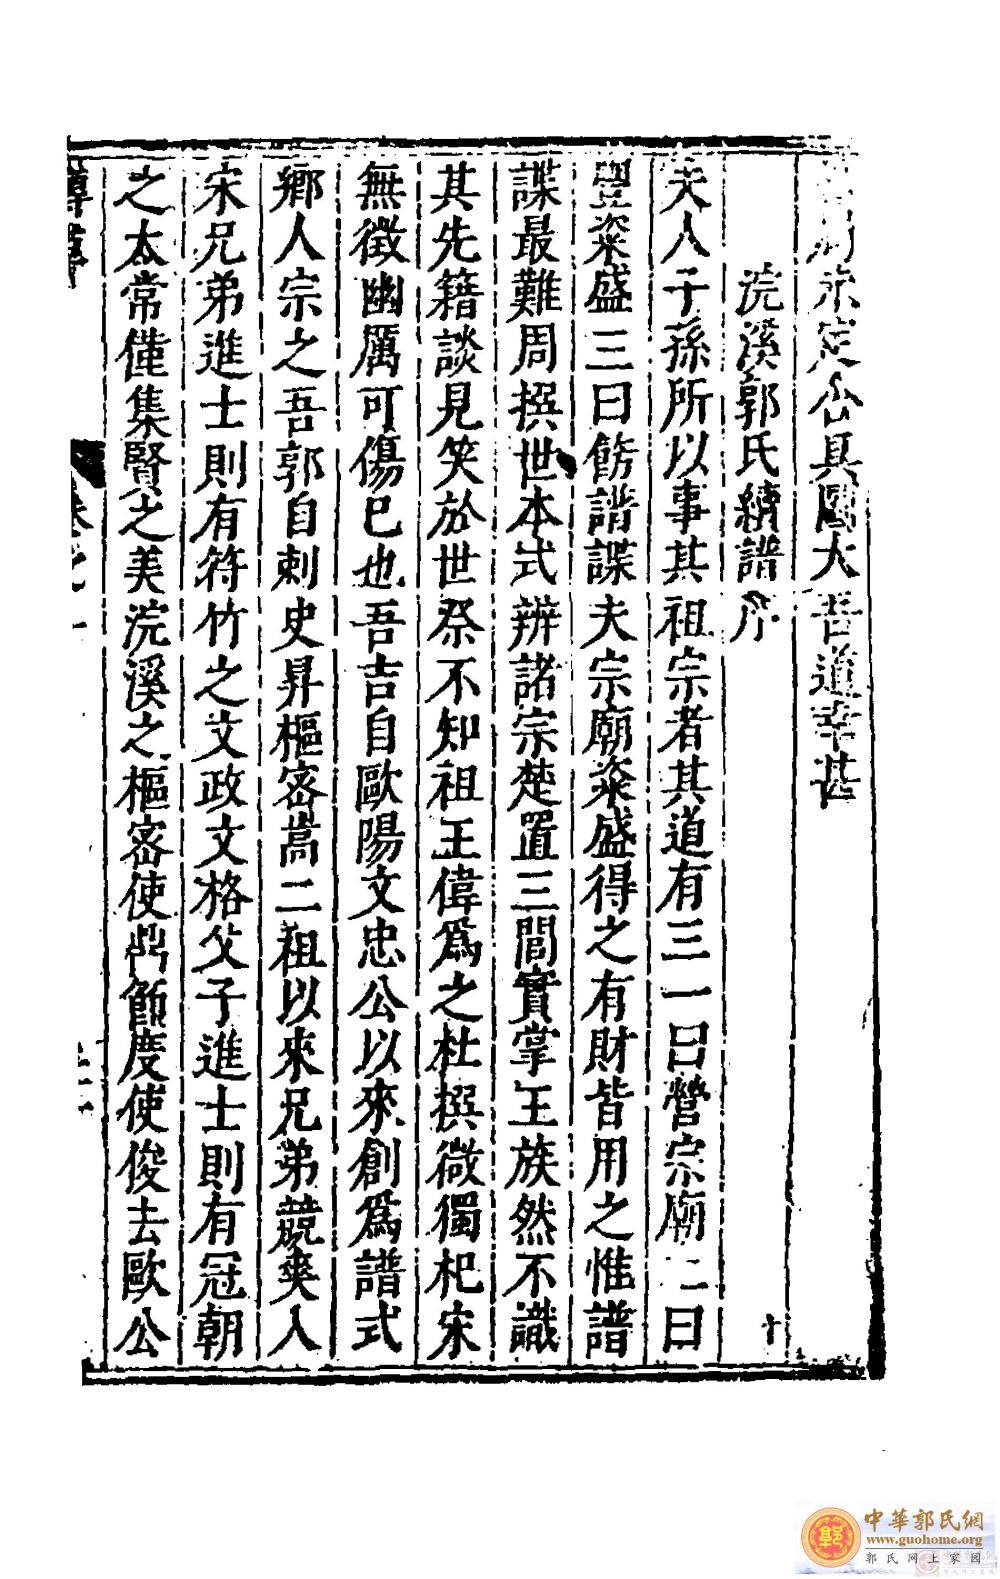 公具國大吾道幸甚
浣溪郭氏續譜序
夫人子孫所以事其祖宗者其道有三一曰營宗廟二曰
豐粢盛三曰餝譜諜夫宗廟粢盛得之有財皆用之惟譜
諜最難周撰世本式辨諸宗楚置三閭實掌王族然不識
其先籍談見笑於世祭不知祖王偉爲之杜撰微獨杞宋
無徵幽厲可傷已也吾吉自歐陽文忠公以來創爲譜式
鄉人宗之吾郭自刺史昇樞密嵩二祖以來兄弟競爽人
宋兄弟進士則有符竹之文政文格父子進士則有冠朝
之太常僮集賢之美浣溪之樞密使節度使俊去歐公
中華郭氏網
www.guohome.org
郭氏网上家園